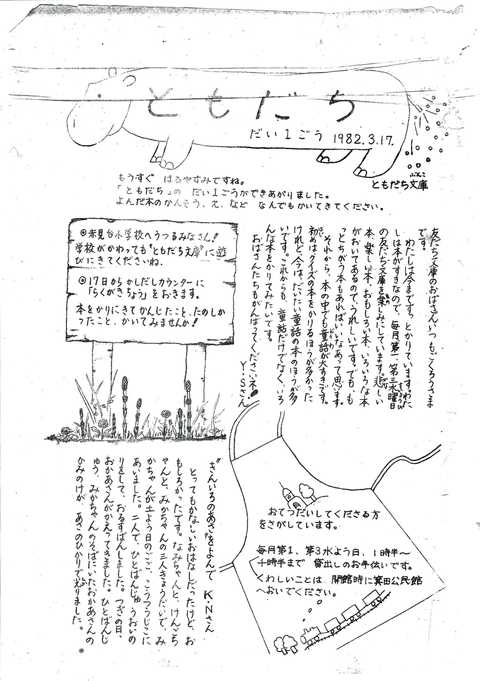 ともだち
だい1ごう 1982.3.17.
ぶんこ
ともだち文庫
もうすぐ はるやすみですね。
「ともだち」の だい1ごうができあがりました。
よんだ本のかんそう、え、など なんでもかいてきてください。
◎赤見台小学校へうつるみなさん!
学校がかわっても"ともだち文庫"に遊
びにきてくださいね。
◎17日からかしだしカウンターに
「らくがきちょう」をおきます。
本をかりにきてかんじたこと、たのしか
ったこと、かいてみませんか!
友だち文庫のおばさん、いつも、ごくろうさま
です。
わたしは今まで、とかりています。わた
しは本がすきなので、毎月第一、第三水曜日
の友だち文庫を楽しみにしています。悲しい
本、楽しい本、おもしろい本、いろいろな本
がおいてあるので、うれしいです。でも、も
っとちがう本もあればいいなあって思います。
それから、本の中でも童話が大すきです。
初めはクイズの本をかりるほうが多かった
けれど、今は、だいたい童話の本のほうが多
いです。これからも、童話だけでなく、いろ
んな本をかりてみたいです。
おばさんたちもがんばってくださいネ!
Y・Sさん
"ぎんいろのあさ"をよんで K・Nさん
とってもかなしいおはなしだったけど、お
もしろかったです。なみちゃんと、けんいち
ゃんと、みかちゃんの三人きょうだいで、み
かちゃんが土よう日のごご、こうつうじこに
あいました。二人で、ひとばんじゅうおいの
りをして、おるすばんしました。つぎの日、
おかあさんがかえってきました。ひとばんじ
ゅう みかちゃんのそばにいたおかあさんの
かみのけが、あさのひかりで光りました。
おてつだいしてくださる方
をさがしています。
毎月第1、第3水よう日、1時半〜
4時半まで 貸出しのお手伝いです。
くわしいことは 開館時に箕田公民館
へおいでください。